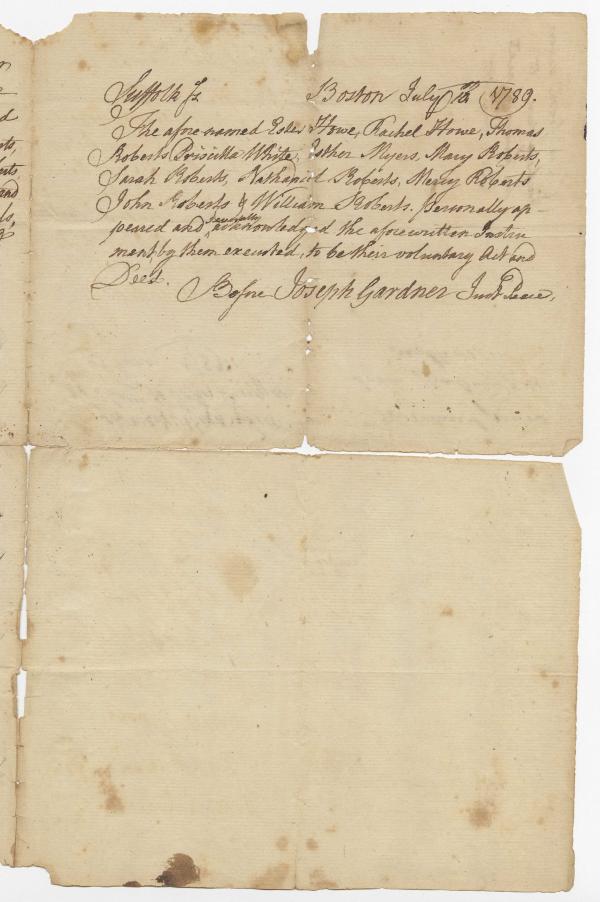 Suffolk Ss. Boston July 1789.
The afore named Ester Howe, Rachel Howe, Thomas
Roberts, Priscilla White, Esther Myers, Mary Roberts,
Sarah Roberts, Nathaniel Roberts, Mercy Roberts
John Roberts & William Roberts. personally ap
peared and severally acknowledged the aforewritten Instru
ment, by them executed, to be their voluntary Act and
Deed.
Before Joseph Gardner Just Peace,